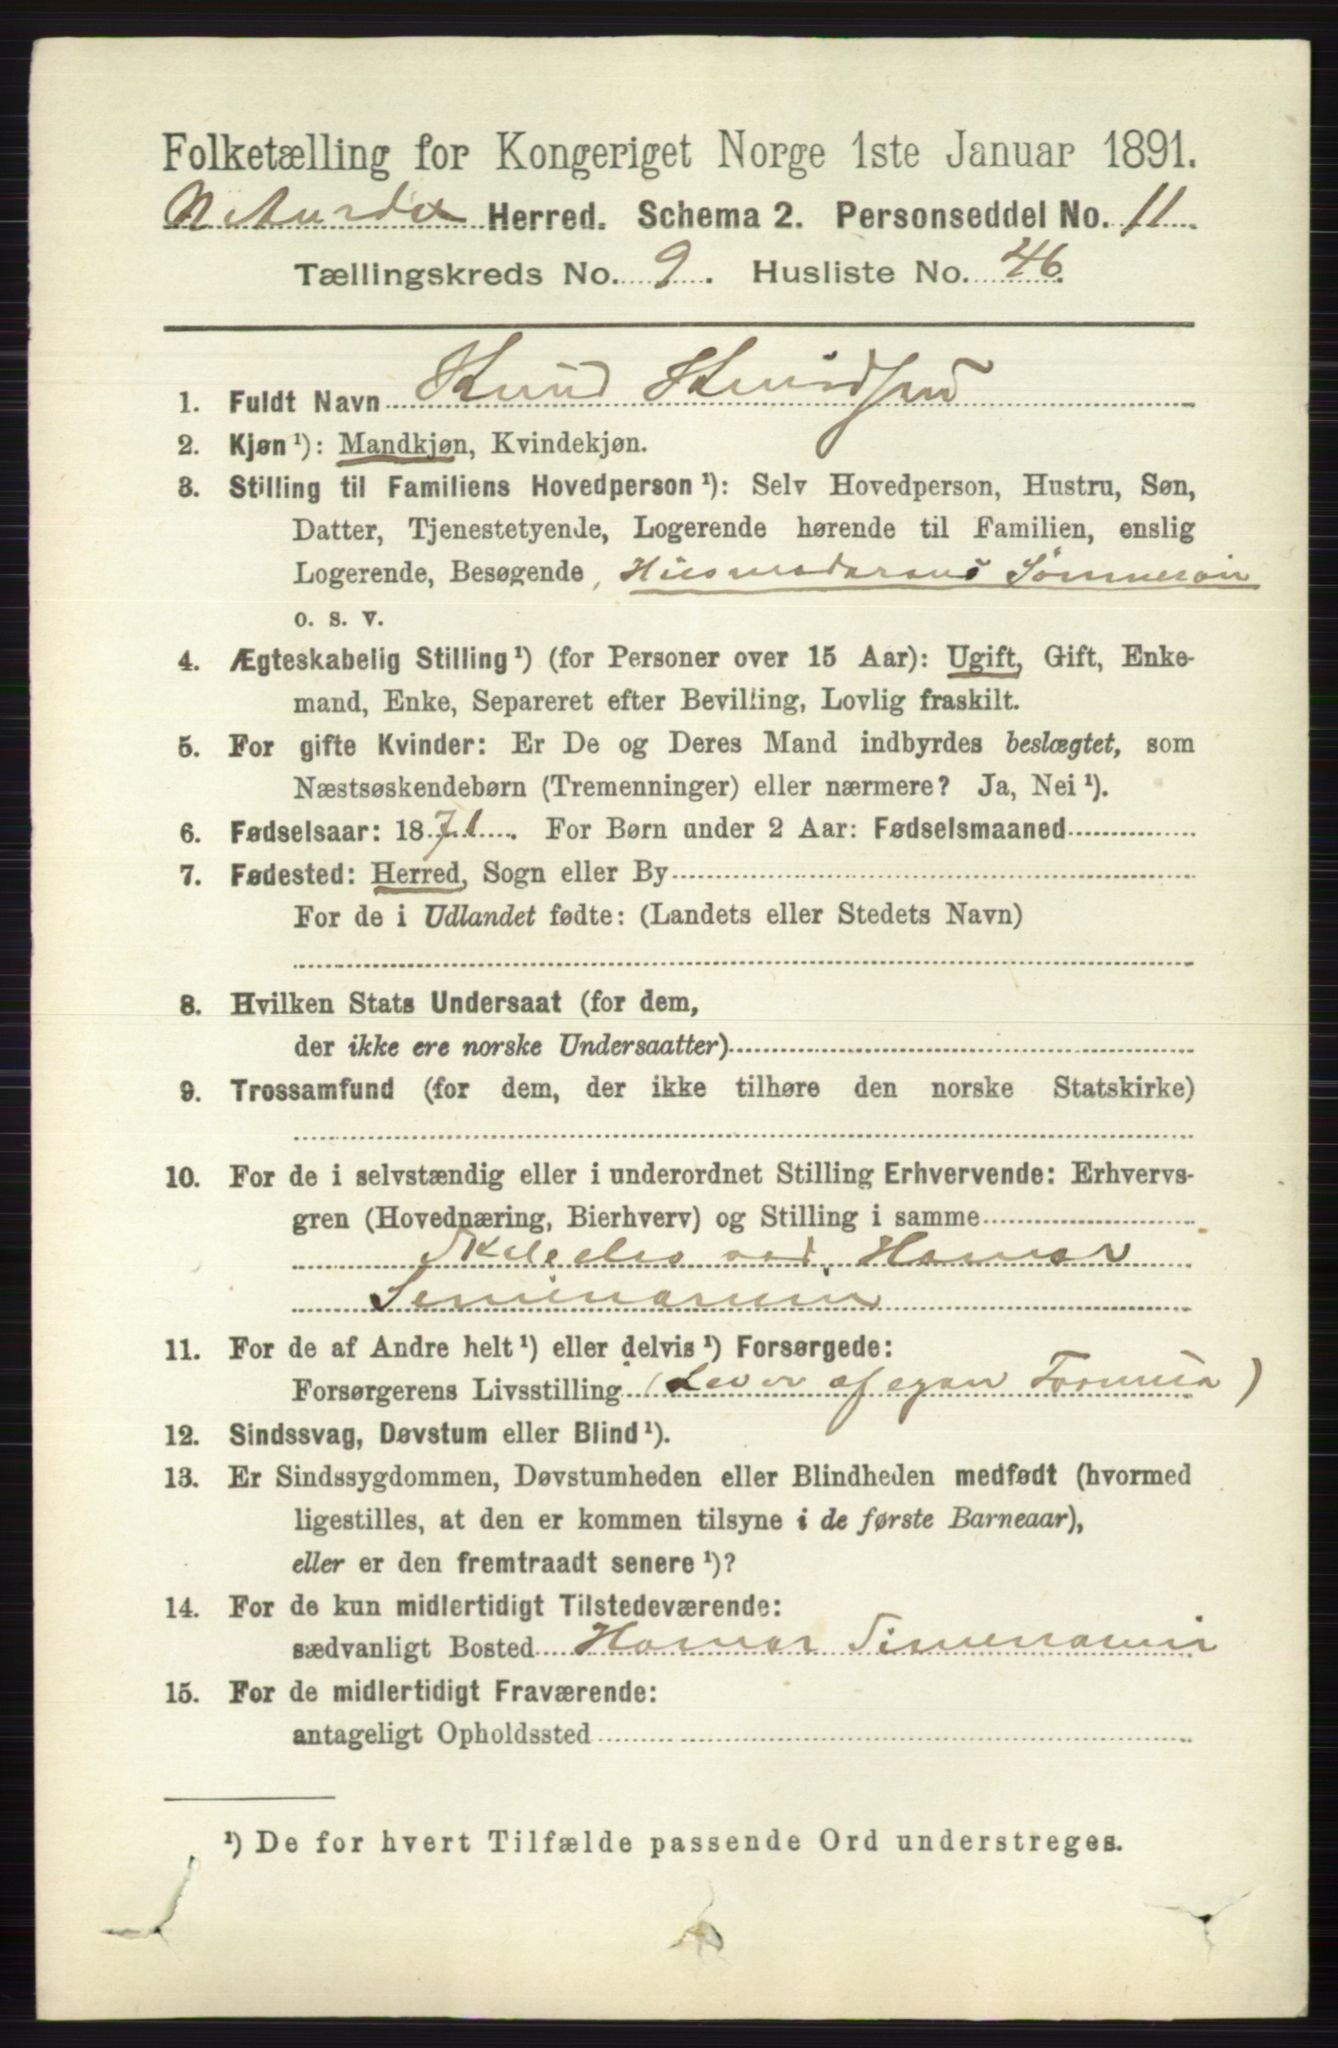 Folketælling for Kongeriget Norge 1ste Januar 1891.
N. Aurdal Herred. Schema 2. Personseddel No. 11
Tællingskreds No. 9. Husliste No. 46
1. Fuldt Navn Knud Knudsen
2. Kjøn ¹): Mandkjøn, Kvindekjøn.
3. Stilling til Familiens Hovedperson ¹): Selv Hovedperson, Hustru, Søn,
Datter, Tjenestetyende, Logerende hørende til Familien, enslig
Logerende, Besøgende, Husmoderens Sønnesøn
o. s. v.
4. Ægteskabelig Stilling ¹) (for Personer over 15 Aar): Ugift, Gift, Enke-
mand, Enke, Separeret efter Bevilling, Lovlig fraskilt.
5. For gifte Kvinder: Er De og Deres Mand indbyrdes beslægtet, som
Næstsøskendebørn (Tremenninger) eller nærmere? Ja, Nei ¹).
6. Fødselsaar: 1871. For Børn under 2 Aar: Fødselsmaaned
7. Fødested: Herred, Sogn eller By
For de i Udlandet fødte: (Landets eller Stedets Navn)
8. Hvilken Stats Undersaat (for dem,
der ikke ere norske Undersaatter)
9. Trossamfund (for dem, der ikke tilhøre den norske Statskirke)
10. For de i selvstændig eller i underordnet Stilling Erhvervende: Erhvervs-
gren (Hovednæring, Bierhverv) og Stilling i samme
ved Hamar
Seminarium
11. For de af Andre helt ¹) eller delvis ¹) Forsørgede:
Forsørgerens Livsstilling (Lever af egen Formue)
12. Sindssvag, Døvstum eller Blind ¹).
13. Er Sindssygdommen, Døvstumheden eller Blindheden medfødt (hvormed
ligestilles, at den er kommen tilsyne i de første Barneaar),
eller er den fremtraadt senere ¹)?
14. For de kun midlertidigt Tilstedeværende:
sædvanligt Bosted Hamar
15. For de midlertidigt Fraværende:
antageligt Opholdssted
¹) De for hvert Tilfælde passende Ord understreges.